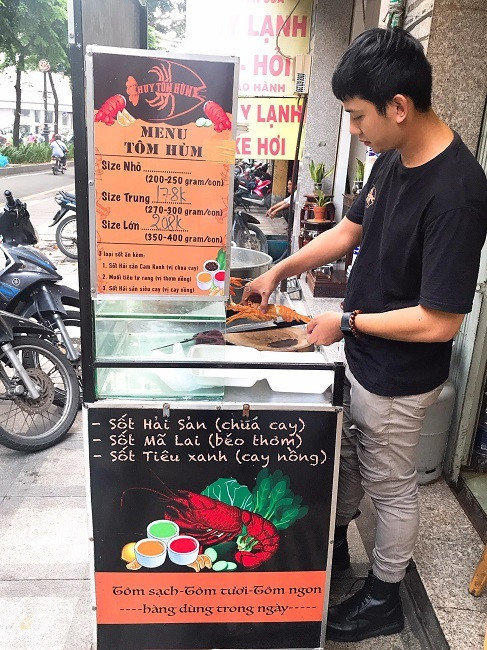 HUY TÔM HÙM
MENU
TÔM HÙM
Size Nhỏ
(200-250 gram/con)
Size Trung 178k
(270-300 gram/con)
Size Lớn 208k
(350-400 gram/con)
3 loại sốt ăn kèm:
1. Sốt Hải sản Cam Ranh (vị chua cay)
2. Muối tiêu tự rang (vị thơm nồng)
3. Sốt Hải sản siêu cay (vị cay nồng)
- Sốt Hải Sản (chuá cay)
- Sốt Mã Lai (béo thơm)
- Sốt Tiêu xanh (cay nồng)
Tôm sạch-Tôm tươi-Tôm ngon
----hàng dùng trong ngày-----
Y LẠNH
- HƠI
BẢO HÀNH
Y LẠNH
XE HƠI